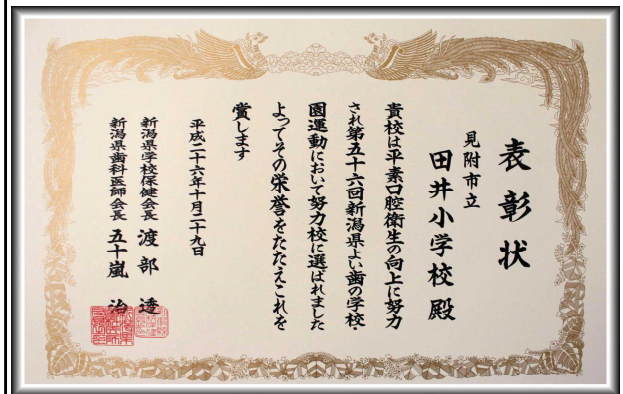 表彰状
見附市立
田井小学校殿
貴校は平素口腔衛生の向上に努力
され第五十六回新潟県よい歯の学校・
園運動において努力校に選ばれました
よってその栄誉をたたえこれを
賞します
平成二十六年十月二十九日
新潟県学校保健会長 渡部 透
新潟県歯科医師会長 五十嵐 治